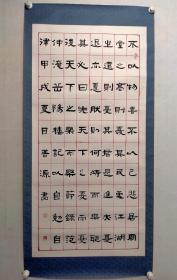 不以物喜不以己悲居廟
堂之高則憂其民處江湖
之遠則憂其君是進亦憂
退亦憂然則何時而樂耶
其必曰先天下之憂而憂
後天下之樂而樂節錄范
仲淹岳陽樓記以自勉
津甲戌夏日善源書